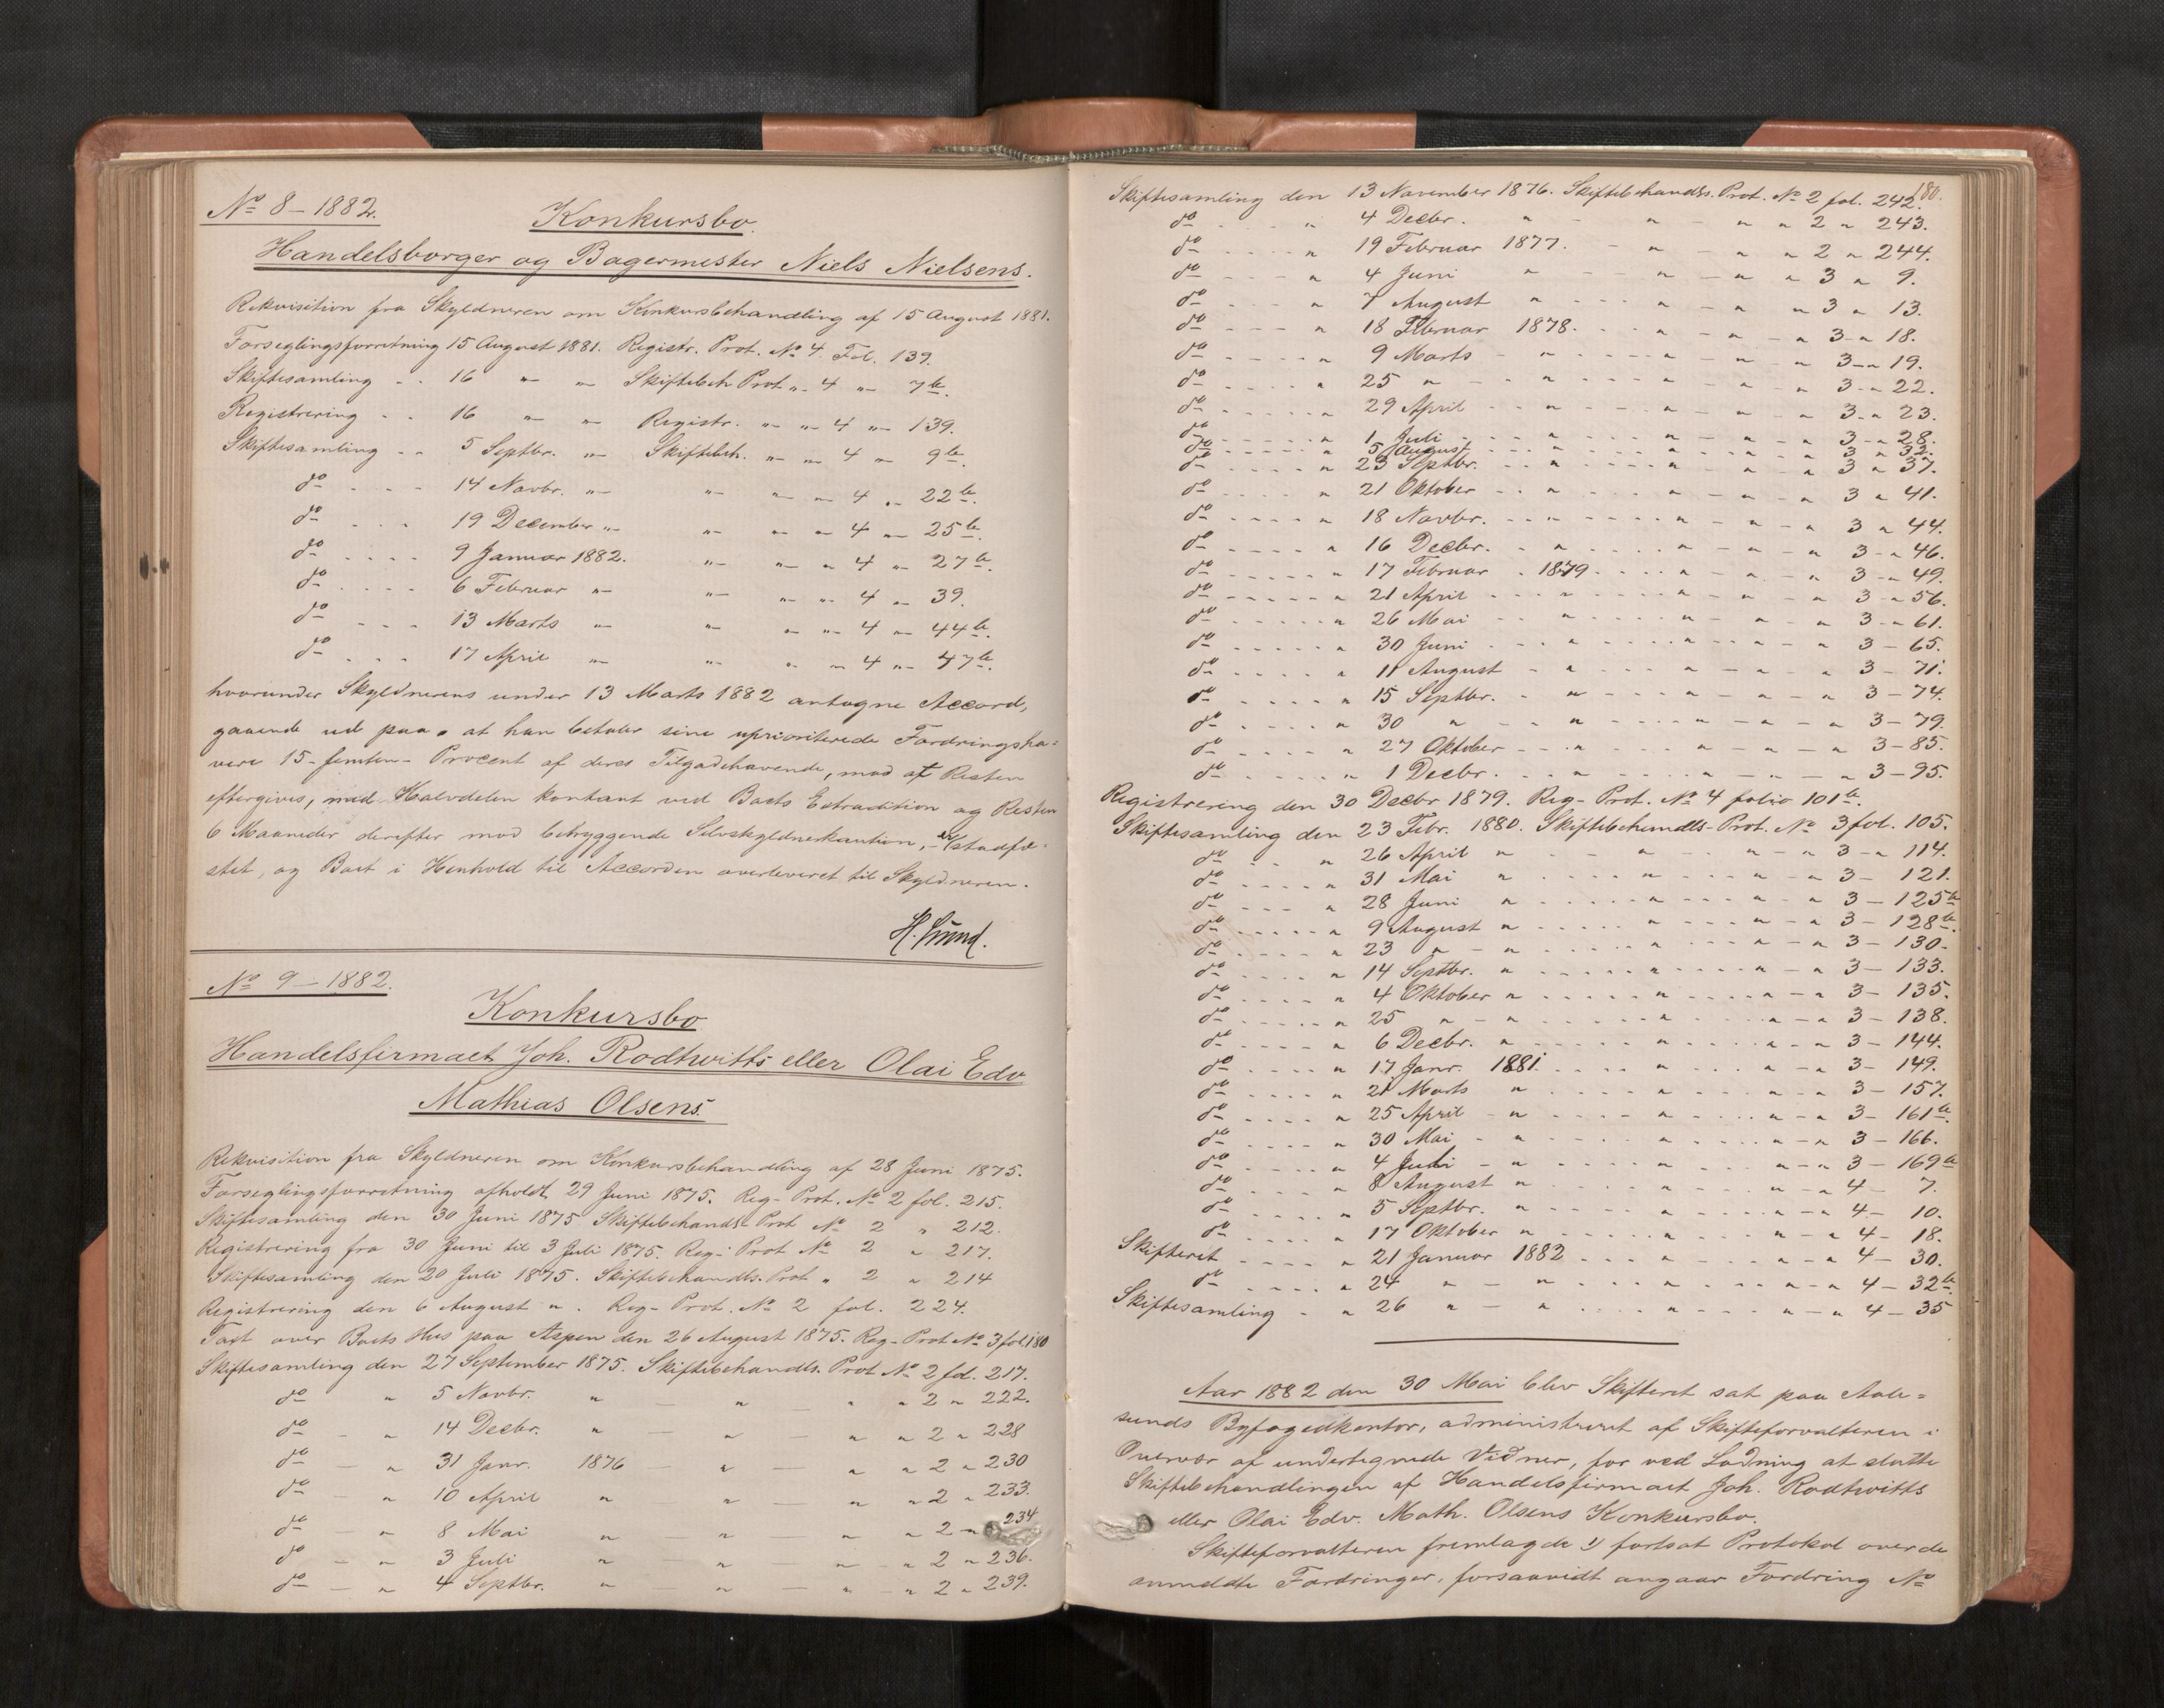 No 8 – 1882.
Konkursbo.
Handelsborger og Bagermester Niels Nielsens.
Rekvisition fra Skyldneren om Konkursbehandling af 15 August 1881.
Forseglingsforretning 15 August 1881. Registr. Prot. No 4. Fol. 139.
Skiftesamling - . 16 " " Skiftebeh Prot " 4 " 7b.
Registrering - . 16 " " Registr. " " 4 " 139.
Skiftesamling - - 5 Septbr. " Skiftebeh. " " 4 " 9b.
do - - - 14 Novbr. " " " " 4 " 22b.
do - - - 19 December " " " " 4 " 25b.
do - - - - 9 Januar 1882. " " " 4 " 27b.
do - - - - 6 Februar " " " " 4 " 39.
do - - - 13 Marts " " " " 4 " 44b.
do - - - 17 April " " " " 4 " 47b.
hvorunder Skyldnerens under 13 Marts 1882 antagne Accord,
gaaende ud paa at han betaler sine uprioriterede Fordringsha-
vere 15 - femten - Procent af deres Tilgodehavende, mod at Resten
eftergives, med Halvdelen kontant ved Boets Extradition og Resten
6 Maaneder derefter mod betryggende Selvskyldnerkaution, - er stadfæ-
stet, og Boet i Henhold til Accorden overleveret til Skyldneren.
H. Lund.
No 9 – 1882.
Konkursbo
Handelsfirmaet Joh. Rodtwitts eller Olai Edv
Mathias Olsens.
Rekvisition fra Skyldneren om Konkursbehandling af 28 Juni 1875.
Forseglingsforretning afholdt 29 Juni 1875. Reg- Prot. No 2 fol. 215.
Skiftesamling den 30 Juni 1875 Skiftebehandls Prot No 2 " 212.
Registrering fra 30 Juni til 3 Juli 1875. Reg- Prot No 2 " 217.
Skiftesamling den 20 Juli 1875. Skiftebehandls. Prot " 2 " 214
Registrering den 6 August ". Reg- Prot. No 2 fol. 224.
Taxt over Boets Hus paa Aspen den 26 August 1875. Reg- Prot No 3 fol. 180
Skiftesamling den 27 September 1875. Skiftebehandls. Prot No 2 fol. 217.
do " 5 Novbr. " – " – " " 2 " 222.
do - " 14 Decbr. " – " – " " 2 " 228
do - " 31 Janr. 1876 – " – " " 2 " 230
do - " 10 April " " – " " 2 " 233.
do - " 8 Mai " – " – " " 2 " 234
do - " 3 Juli " – " – " " 2 " 236.
do - " 4 Septbr. " " – " " 2 " 239.
180.
Skiftesamling den 13 November 1876. Skiftebehandls. Prot. No 2 fol. 242.
do - - - " 4 Decbr. " - " - " " 2 " 243.
do - - - " 19 Februar 1877. - " - " " 2 " 244.
do - - - " 4 Juni " - " - " " 3 " 9.
do - - - " 7 August " - - " - " " 3 " 13.
do - - - " 18 Februar 1878. - - " - " " 3 - " 18.
do - - - " 9 Marts - " - - " - " " 3 - " 19.
do - - - " 25 " - " - - " - " " 3 - " 22.
do - - - " 29 April - - " - - " - " - " 3 - " 23.
do - - - " 1 Juli - - " - - " - " - " 3 - " 28.
do - - - " 5 August - - " - - " - " - " 3 " 32.
do - - - " 23 Septbr. - - " - - " - " - " 3 " 37.
do - - - " 21 Oktober - - " - - " - " - " 3 " 41.
do - - - " 18 Novbr. - - " - - " - " - " 3 " 44.
do - - - " 16 Decbr. - " - - " - " - " 3 - " 46.
do - - - " 17 Februar . 1879. - - " - " - " 3 - " 49.
do - - - " 21 April - - " - - " - " - " 3 - " 56.
do - - - " 26 Mai - - " - - " - " - " 3 - " 61.
do - - - " 30 Juni - - " - - " - " - " 3 – 65.
do - - - " 11 August - " - - " - " - " 3 – 71.
do - - - " 15 Septbr. - " - - " - " - " 3 – 74.
do - - - " 30 " - " - - " - " - " 3 – 79.
do - - - " 27 Oktober - - " - - " - " - " 3 – 85.
do - - - " 1 Decbr. - - " - - " - " - " 3 – 95.
Registrering den 30 Decbr 1879. Reg- Prot. No 4 folio 101b.
Skiftesamling den 23 Febr. 1880. Skiftebehandls- Prot. No 3 fol. 105.
do - - " 26 April " - - " - " - " 3 - " 114.
do - - - " 31 Mai " - - " - " - " 3 – 121.
do - - - " 28 Juni " - - " - " - " 3 – 125b
do - - - " 9 August " - - " - " - " 3 – 128b.
do - - - " 23 " - " - - " - " - " 3 – 130.
do - - - " 14 Septbr. " - - " - " - " 3 – 133.
do - - - " 4 Oktober " - - " - " - " 3 – 135.
do - - - " 25 " - " - - " - " - " 3 – 138.
do - - - " 6 Decbr. " - - " - " - " 3 – 144.
do - - - " 17 Janr. 1881. - - " - " - " 3 – 149.
do - - - " 21 Marts " - - " - " - " 3 – 157.
do - - - " 25 April - " - - " - " - " 3 – 161b
do - - - " 30 Mai - " - - " - " - " 3 – 166.
do - - - " 4 Juli - " - - " - " - " 3 – 169b
do - - - " 8 August " - - " - " - " 4 – 7.
do - - - " 5 Septbr. " - - " - " - " 4 – 10.
do - - - " 17 Oktober " - - " - " - " 4 – 18.
Skifteret - - - " 21 Januar 1882 - - " - " - " 4 – 30.
do - - - " 24 " – " - - " - " - " 4 – 32b.
Skiftesamling - " 26 " – " - - " - " - " 4 – 35
Aar 1882 den 30 Mai blev Skifteret sat paa Aale-
sunds Byfogedkontor, administreret af Skifteforvalteren i
Overvær af undertegnede Vidner, for ved Lodning at slutte
Skiftebehandlingen af Handelsfirmaet Joh. Rodtwitts
eller Olai Edv. Math. Olsens Konkursbo.
Skifteforvalteren fremlagde 1) fortsat Protokol over de
anmeldte Fordringer, forsaavidt angaar Fordring No